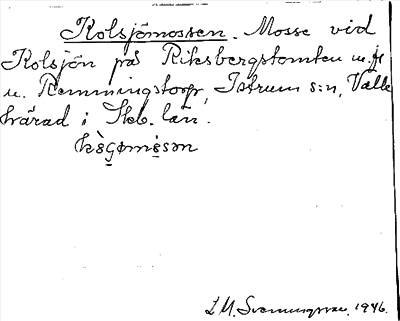 Kolsjömossen. Mosse vid
Kolsjön på Riksbergstomten u. fr
u. Remmingstorp, Istrum s:n, Valle
härad i Skb. län.
L M. Svenningsson, 1946.